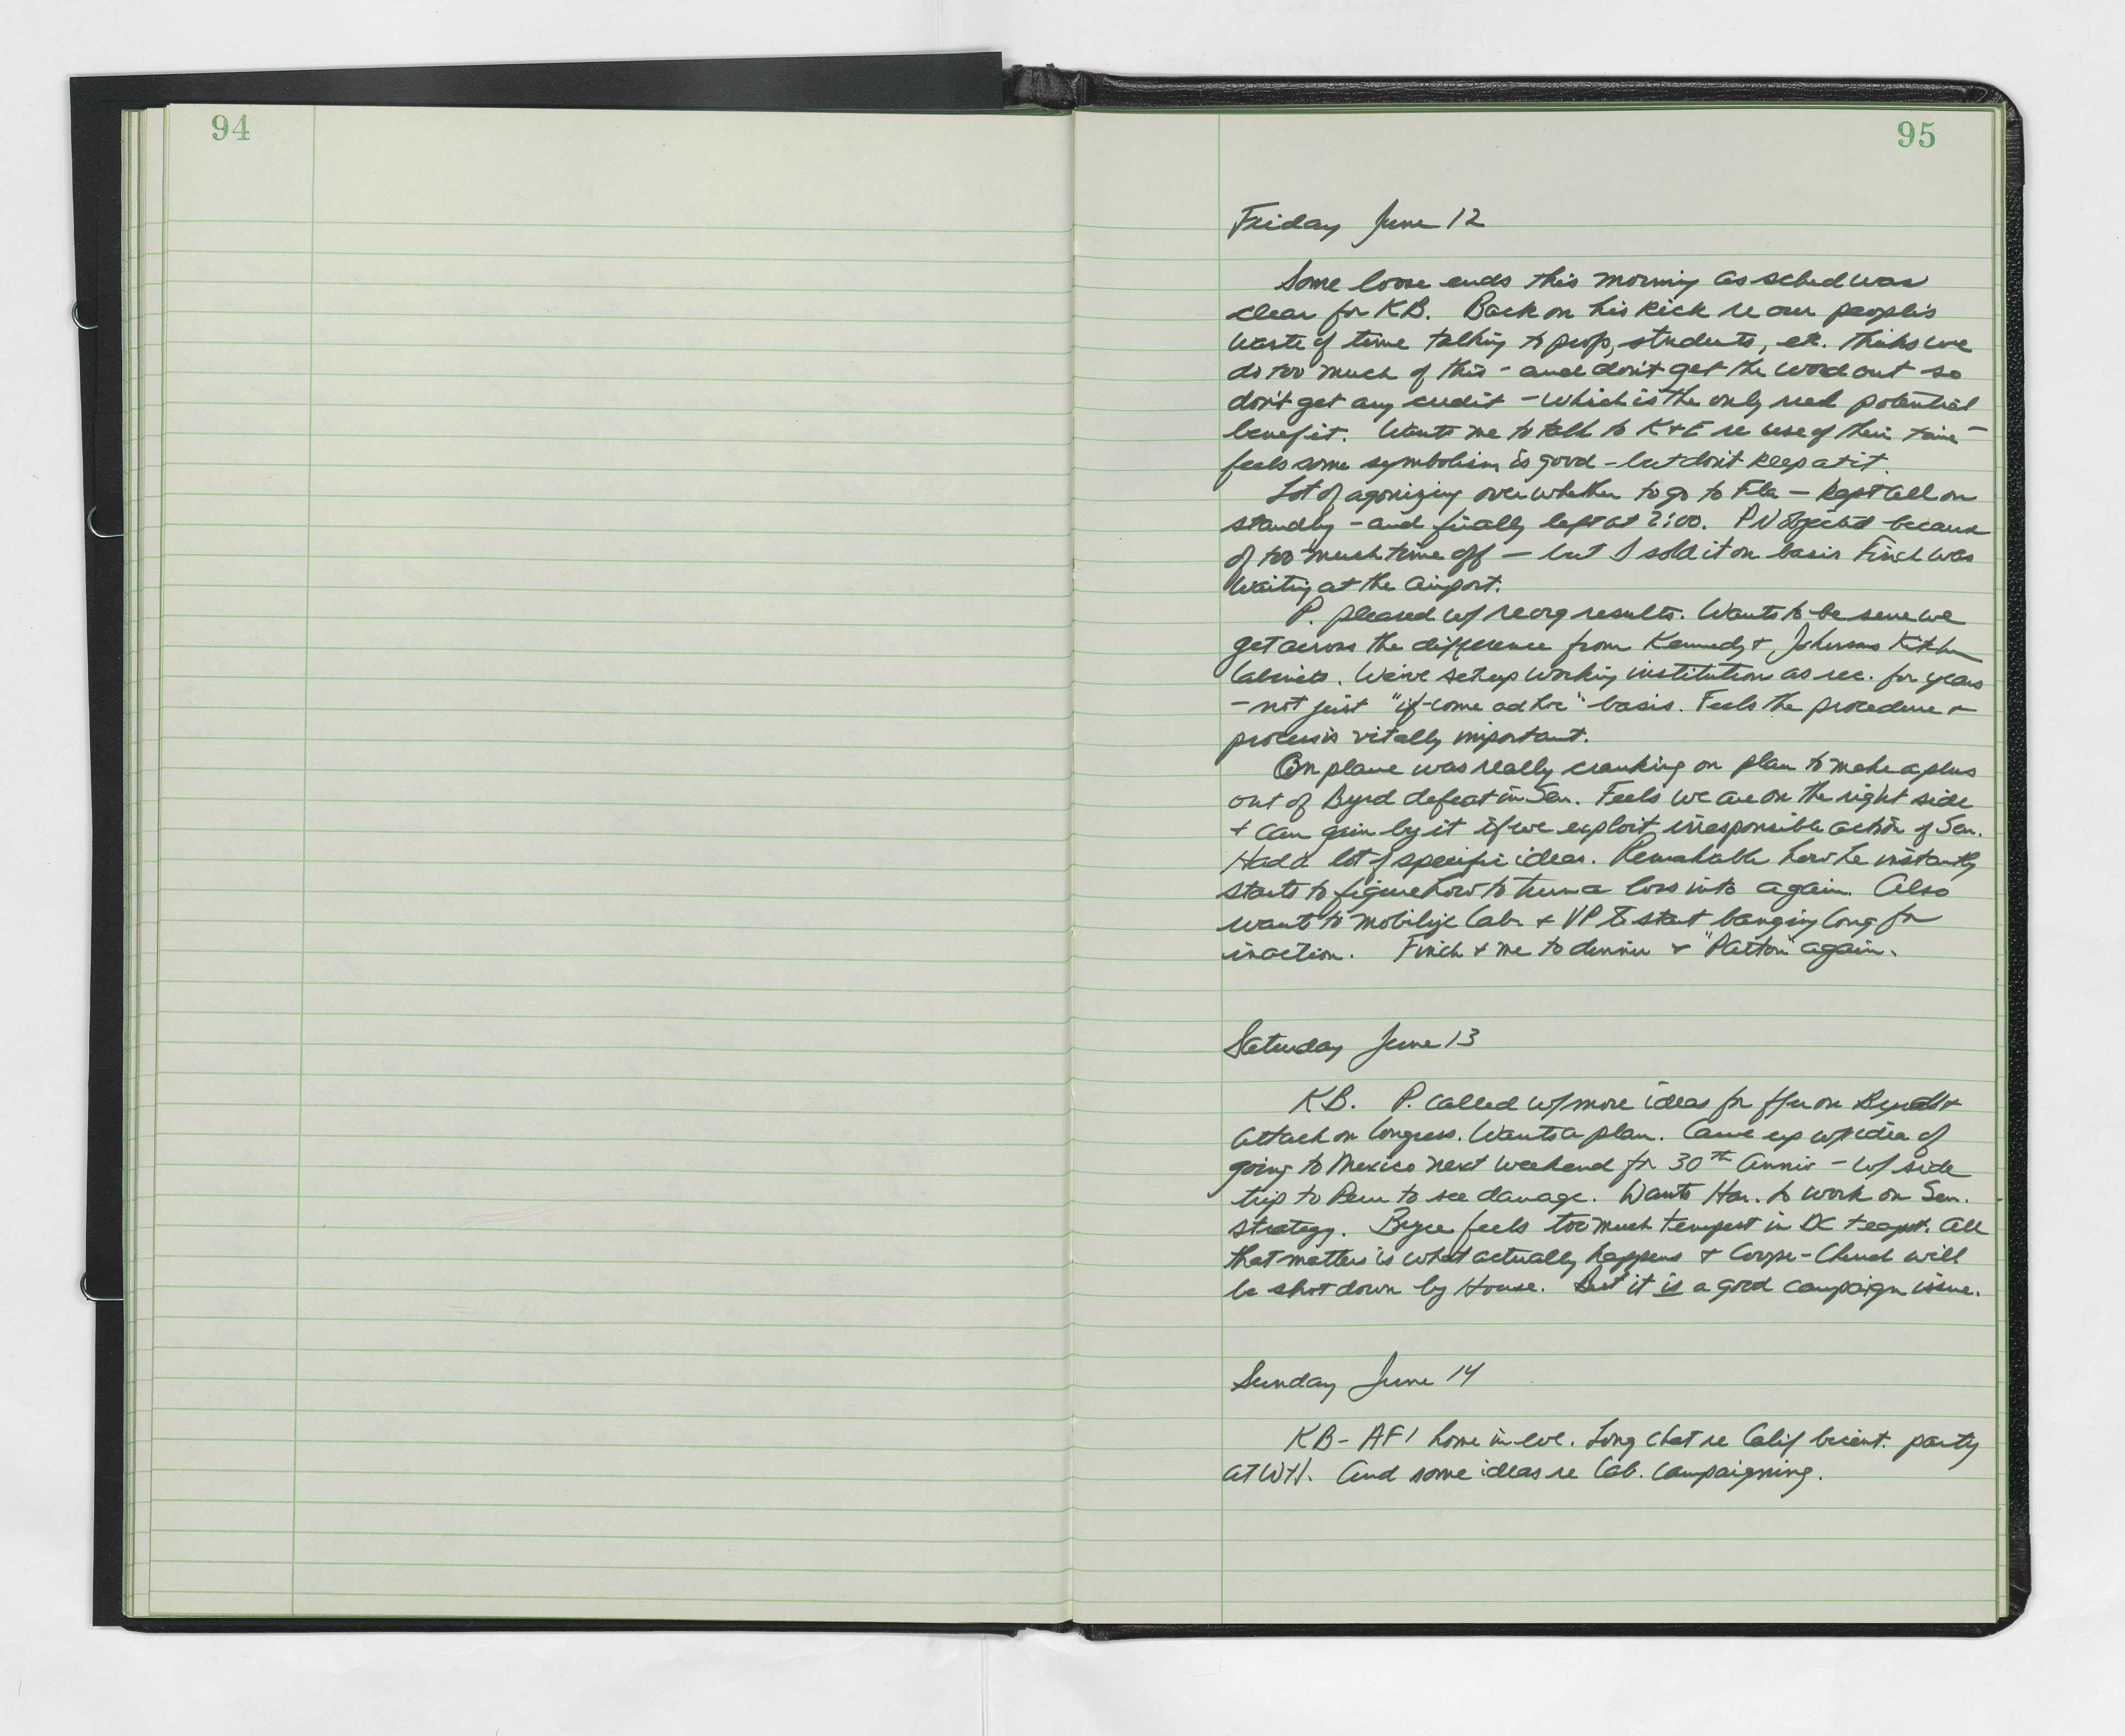 94
95
Friday June 12
Some loose ends this morning as sched was
clear for KB. Back on his kick re our people's
waste of time talking to profs, students, etc. Thinks we
do too much of this - and don't get the word out so
don't get any credit - which is the only real potential
benefit. Wants me to talk to K+E re use of their time -
feels some symbolism is good - but don't keep at it.
Lot of agonizing over whether to go to Fla - kept all on
standby - and finally left at 2:00. PN objected because
of too much time off - but I sold it on basis Finch was
waiting at the airport.
P. pleased w/ reorg results. Wants to be sure we
get across the difference from Kennedy + Johnsons Kitchen
Cabinets. We've set up working institution as rec. for years
- not just "if-come ad hoc" basis. Feels the procedure +
process is vitally important.
On plane was really cranking on plan to make a plus
out of Byrd defeat in Sen. Feels we are on the right side
+ can gain by it if we exploit irresponsible action of Sen.
Had a lot of specific ideas. Remarkable how he instantly
starts to figure how to turn a loss into a gain. Also
wants to mobilize Cab. + VP to start banging Cong for
inaction. Finch + me to dinner + "Patton" again.
Saturday June 13
KB. P. called w/ more ideas for ffu on Byrd +
attack on Congress. Wants a plan. Came up w/ idea of
going to Mexico next weekend for 30th Anniv - w/ side
trip to Peru to see damage. Wants Har. to work on Sen.
strategy. Bryce feels too much tempest in DC teapot. All
that matters is what actually happens + Cooper-Church will
be shot down by House. But it is a good campaign issue.
Sunday June 14
KB - AF1 home in eve. Long chat re Calif party
at WH. And some ideas re Cab. campaigning.